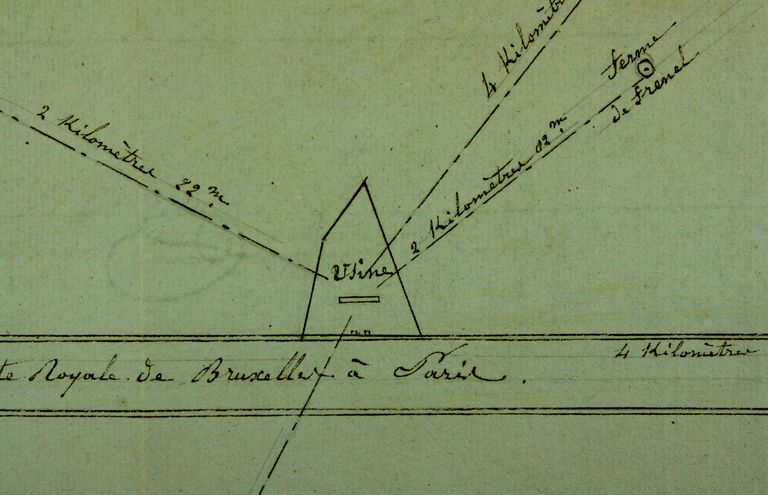 4 Kilomètre
Ferme
de Frenel
2 Kilomètres 22 m
2 Kilomètres 12 m
Usine
4 Kilomètres
te Royale de Bruxelles à Paris.